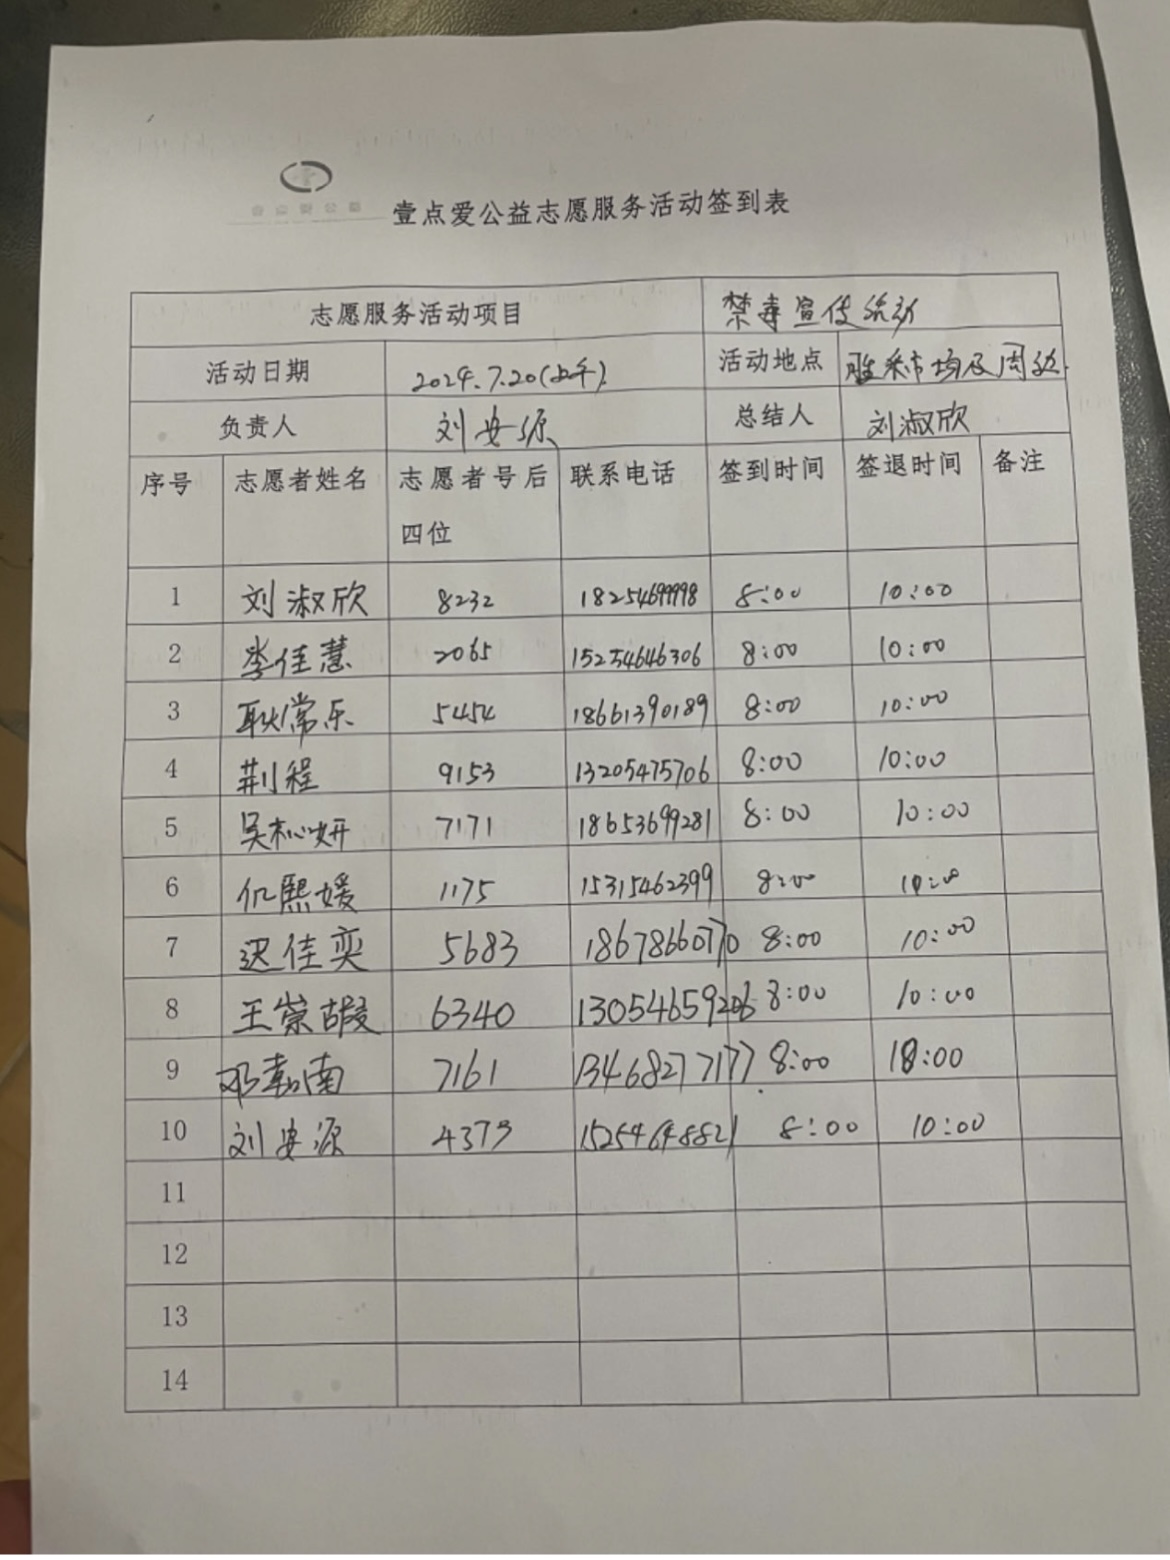 壹点爱公益
壹点爱公益志愿服务活动签到表
志愿服务活动项目 禁毒宣传活动
活动日期 2024.7.20(上午) 活动地点 胜采市场及周边
负责人 刘安源 总结人 刘淑欣
序号 志愿者姓名 志愿者号后四位 联系电话 签到时间 签退时间 备注
1 刘淑欣 8232 18254699998 8:00 10:00
2 李佳慧 2065 15254646306 8:00 10:00
3 耿常乐 5454 18661390189 8:00 10:00
4 荆程 9153 13205475706 8:00 10:00
5 吴杺妍 7171 18653699281 8:00 10:00
6 仉熙媛 1175 15315462399 8:00 10:00
7 迟佳奕 5683 18678660770 8:00 10:00
8 王崇嘏 6340 13054659206 8:00 10:00
9 邓勃南 7161 13468277177 8:00 18:00
10 刘安源 4373 15254648821 8:00 10:00
11
12
13
14